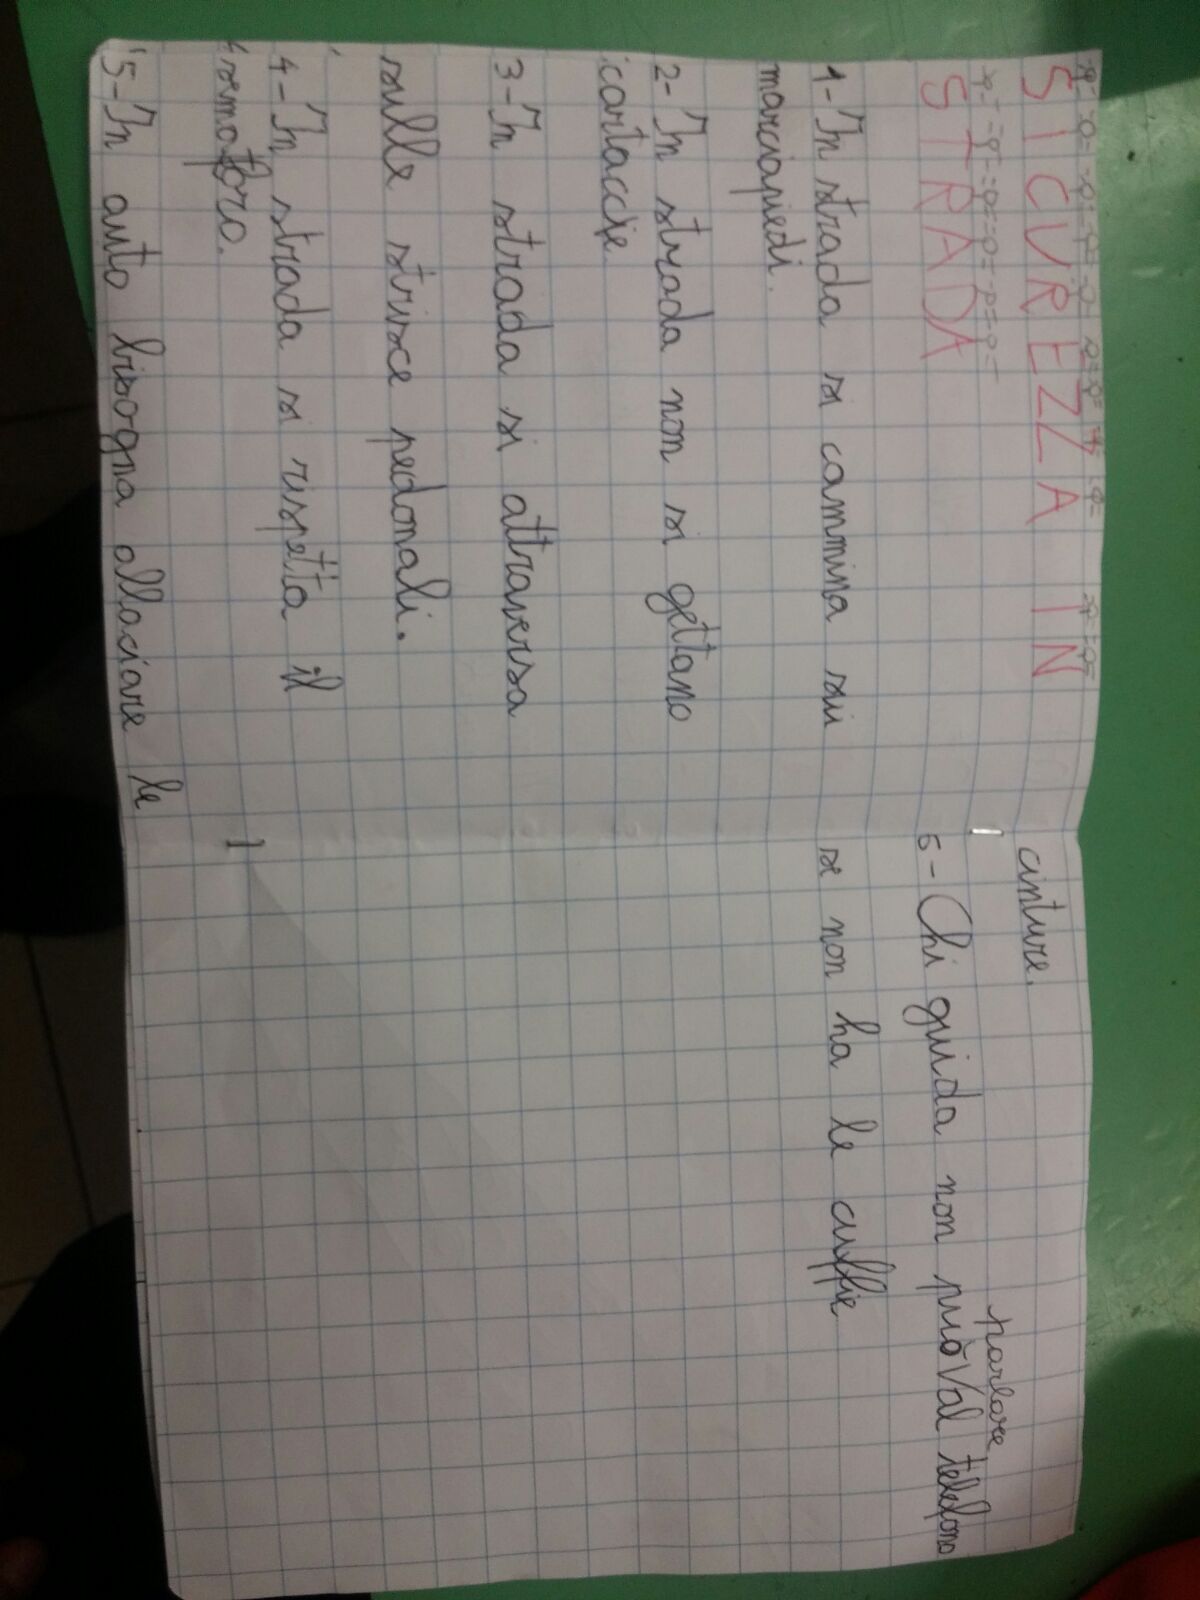 SICUREZZA IN
STRADA
1-In strada si cammina sui
marciapiedi.
2-In strada non si gettano
cartaccie
3-In strada si attraversa
sulle strisce pedonali.
4-In strada si rispetta il
semaforo.
5-In auto bisogna allaciare le
cinture.
5-Chi guida non può parlare al telefono
se non ha le cuffie